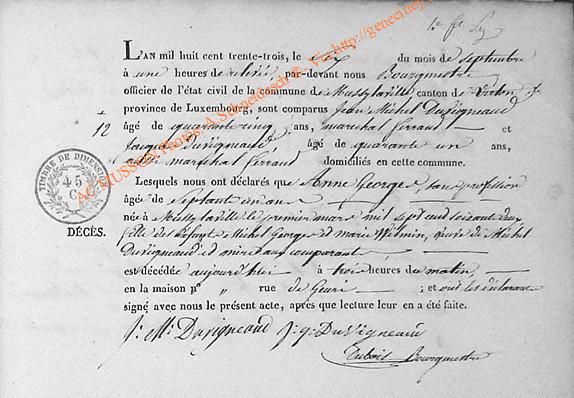 L'AN mil huit cent trente-trois, le six du mois de septembre
à une heures de relevée, par-devant nous Bourgmestre
officier de l'état civil de la commune de Mussylaville canton de Virton
province de Luxembourg, sont comparus Jean Michel Duvigneaud
12 âgé de quarante cinq ans, marechal ferrant et
Jacques Duvigneaud, âgé de quarante un ans,
aussi marechal ferrant domiciliés en cette commune.
Lesquels nous ont déclarés que Anne George, sans profession
âgée de septante un ans
née à Mussylaville le premier mars mil sept cent soixante deux
fille des défunts Michel George et marie Wilmin, veuve de Michel
Duvigneaud et mère aux comparants
est décédée aujourd'hui à trois heures du matin,
en la maison nº „ rue de ; et ont les déclarants
signé avec nous le présent acte, après que lecture leur en a été faite.
J. M. Duvigneaud J. J. Duvigneaud
Dubois Bourgmestre
DÉCÈS.
TIMBRE DE DIMENSION
45
AC MUSSON Photos A. Schneidesch ®- Via http://geneciney